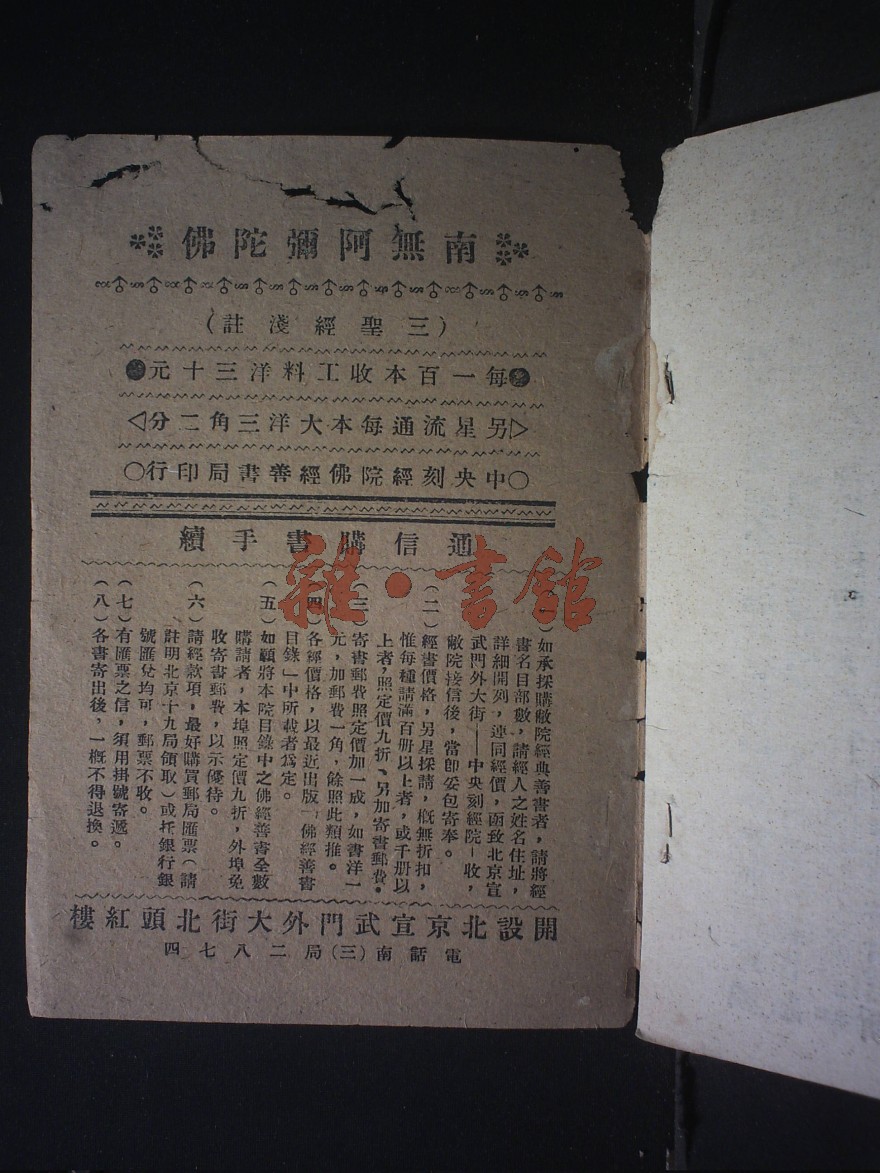 南無阿彌陀佛
（三聖經淺註）
每一百本收工料洋三十元
另星流通每本大洋三角二分
○中央刻經院佛經善書局印行○
通信購書手續
如承採購敝院經典善書者，請將經
書名目部數，請經人之姓名住址，
詳細開列，連同經價，函致北京宣
武門外大街——中央刻經院—收，
敝院接信後，當卽妥包寄奉。
（二）經書價格，另星採請，概無折扣，
惟每種請滿百册以上者，或千册以
上者，照定價九折、另加寄書郵費。
（三）寄書郵費照定價加一成，如書洋一
元，加郵費一角，餘照此類推。
（四）各經價格，以最近出版「佛經善書
目錄」中所載者爲定。
（五）如願將本院目錄中之佛經善書全數
購請者，本埠照定價九折，外埠免
收寄書郵費，以示優待。
（六）請經款項，最好購買郵局匯票（請
註明北京十九局領取）或托銀行銀
號匯兌均可，郵票不收。
（七）有匯票之信，須用掛號寄遞。
（八）各書寄出後，一概不得退換。
開設北京宣武門外大街北頭紅樓
電話南（三）局二八七四
雜·書館